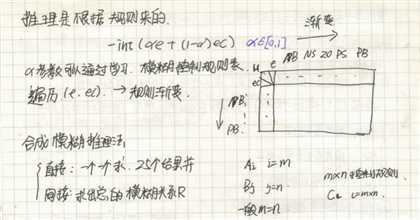 推理是根据规则来的.
-int(αe+(1-α)ec) α∈[0,1]
α参数可以通过学习. 模糊控制规则表.
遍历(e.ec). → 规则渐变.
渐变
u e NB NS ZO PS PB
ec
NB
PB.
合成模糊推理法
直接: 一个一个求. 25个结果并
间接: 求出总的模糊关系R
Ai i=m
Bj j=n
一般m=n
m×n 控制规则
Cu =m×n.